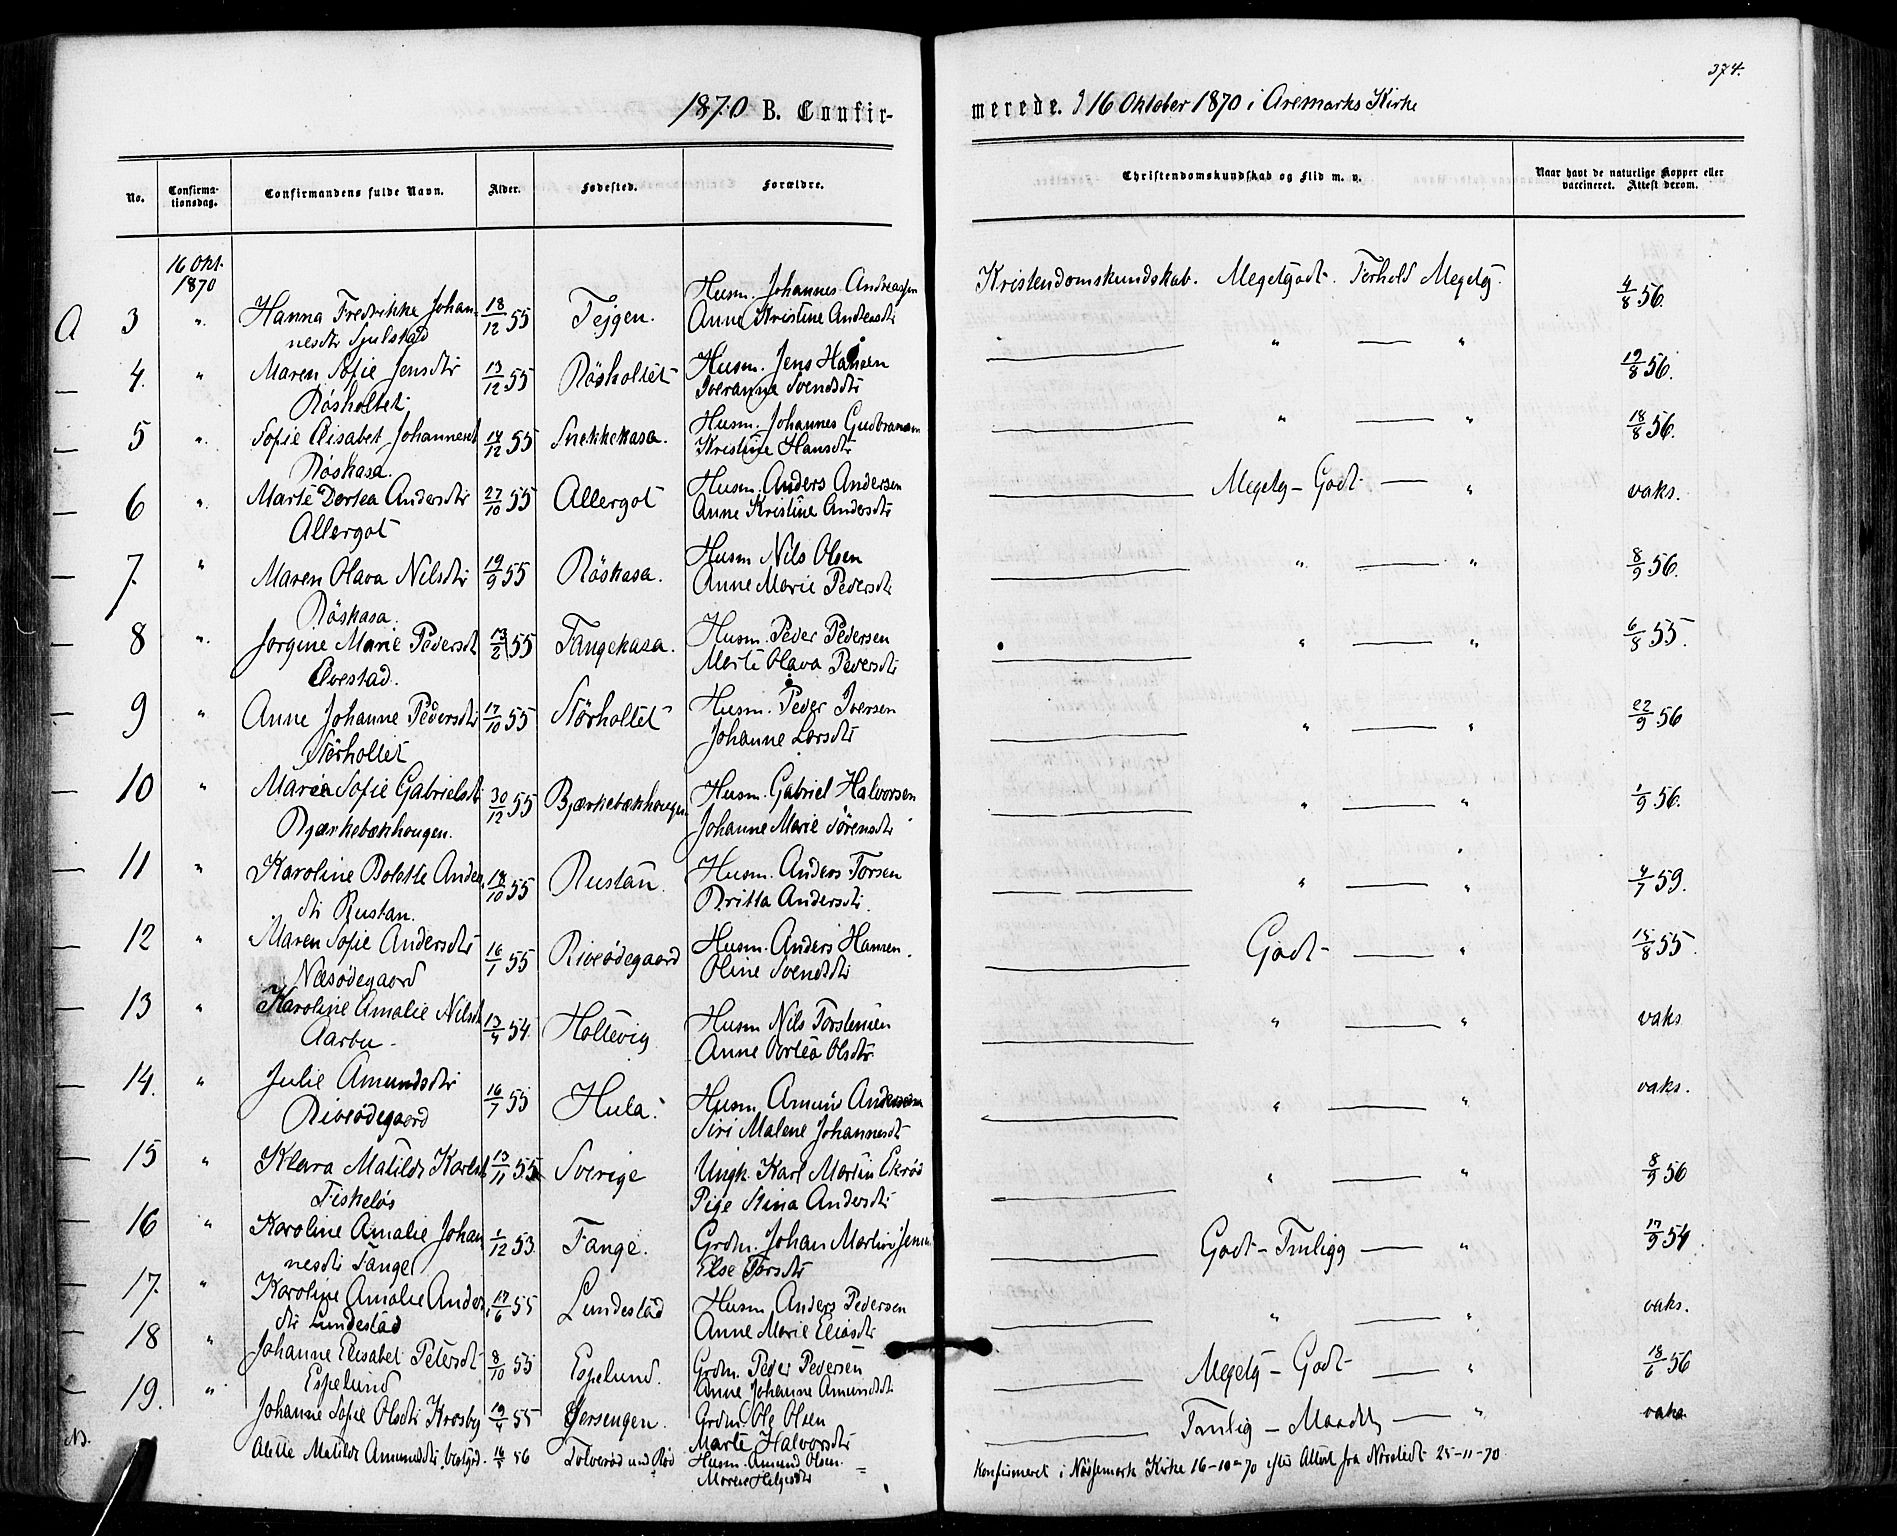 374.
1870 B. Confir-
merede. d 16 Oktober 1870 i Aremarks Kirke
No.
Confirma-
tionsdag.
Confirmandens fulde Navn.
Alder.
Fødested.
Forældre.
Christendomskundskab og Flid m. v.
Naar havt de naturlige Kopper eller
vaccineret. Attest derom.
16 Okt.
1870
Kristendomskundskab. Megetgodt. Forhold Megetg.
A 3 " Hanna Fredrikke Johan- 18/12 55 Tejgen. Husm. Johannes Andreassen 4/8 56.
nesdtr Anne Kristine Andersdtr
4. " Maren Sofie Jensdtr 13/12 55 Röshollet Husm. Jens Hansen " " 19/8 56.
Röshollet. Iveranna Svendsdtr
5 " Sofie Elisabet Johannesdt 14/12 55 Snekkekasa. Husm. Johannes Gudbransen " " 18/8 56.
Röskasa. Kristine Hansdtr
6 " Marte Dortea Andersdtr 27/10 55 Allergot Husm. Anders Andersen Megetg - Godt " vaks.
Allergot Anne Kristine Andersdtr
7. " Maren Olava Nilsdtr 19/9 55 Röskasa. Husm Nils Olsen " " 8/9 56.
Röskasa. Anne Marie Pedersdtr
8 " Jørgine Marie Pedersdt 13/2 55 Fangekasa. Husm. Peder Pedersen " " 6/8 55.
Marte Olava Pedersdtr
9 " Anne Johanne Pedersdtr 17/10 55 Störholtet Husm. Peder Iversen " " 22/9 56
Störholtet Johanne Larsdtr
10 " Maria Sofie Gabrielsdt 30/12 55 Bjærkebækhougen Husm. Gabriel Halvorsen " " 1/9 56.
Bjærkebækhougen. Johanne Marie Sörensdtr
11 " Karoline Bolette Anders 18/10 55 Rustan. Husm. Anders Torsen " " 4/7 59.
dtr Rustan. Britta Andersdtr.
12 " Maren Sofie Andersdtr 16/1 55 Riverødegaard Husm. Anders Hansen. Godt " 15/8 55.
Næsødegaard Oline Svendsdtr
13 " Karoline Amalie Nilsdt 13/4 54. Holtevig Husm Nils Torstensen " " vaks
Aarbu. Anne Dortea Olsdtr
14. " Julie Amundsdtr 16/7 55 Hula. Husm Amund Andersen " " vaks.
Riverødegaard Siri Malene Johannesdtr
15 " Klara Matilde Karlsdt 13/11 55 Sverige Ungk. Karl Martin Ekrød " " 8/9 56
Fiskeløs Pige Stina Andersdtr
16 " Karoline Amalie Johan 1/12 53. Fange. Grdm. Johan Martin Jensen Godt - Temligg " 17/9 54
nesdtr Fange Else Torsdtr
17. " Karoline Amalie Anders 17/6 55 Lundestad Husm Anders Pedersen " " vaks.
dtr Lundestad Anne Marie Eliasdtr
18 " Johanne Elisabet Petersdt 8/10 55 Espelund. Grdm. Peder Pedersen Megetg - Godt " 18/6 56
Espelund Anne Johanne Amundsdtr
19. " Johanne Sofie Olsdtr Krosby 19/4 55 Gjersengen. Grdm. Ole Olsen Temlig - Maadel " vaks
Marte Halvorsdtr
NB. Alette Matilde Amundsdtr 56 Tolverød und Rød Husm. Amund Olsen Konfirmeret i Nössemark Kirke 16-10-70 efter Attest fra 25-11-70
Maren Helgesdtr